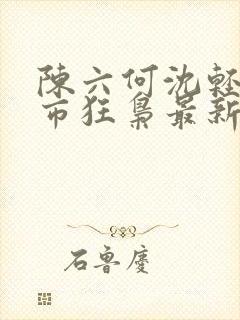 陳六何沈輕
市狂梟最新
石魯慶